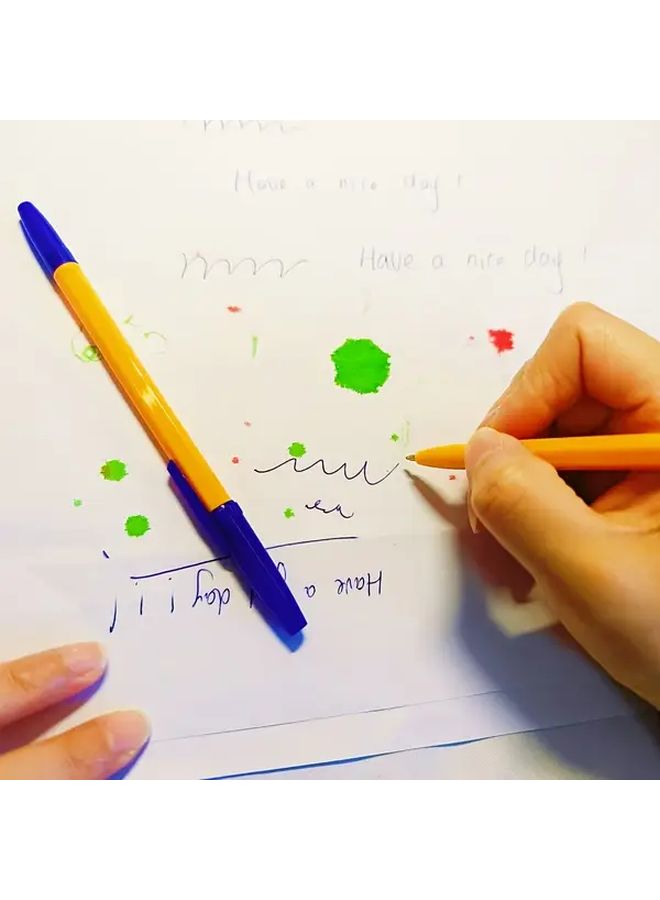 Have a nice day!
Have a nice day!
Have a day!!!!